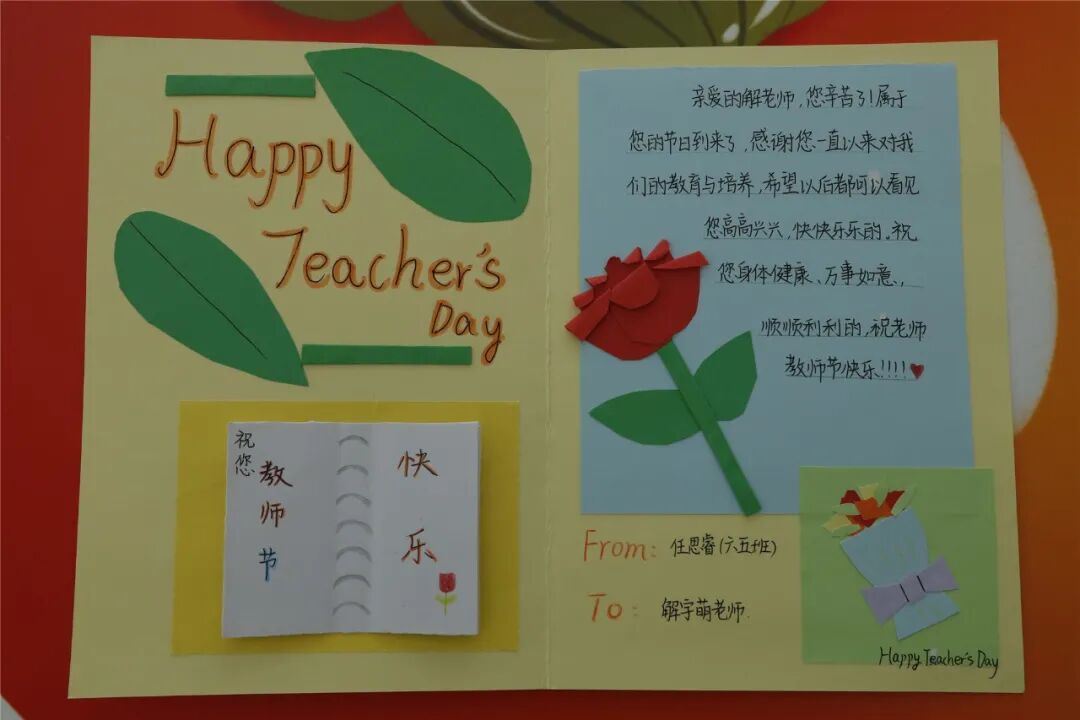 Happy
Teacher's
Day
祝您
教师节
快乐
亲爱的解老师,您辛苦了!属于
您的节日到来了,感谢您一直以来对我
们的教育与培养,希望以后都可以看见
您高高兴兴,快快乐乐的。祝
您身体健康、万事如意,
顺顺利利的,祝老师
教师节快乐!!!!
From: 任思睿(六五班)
To: 解宇萌老师
Happy Teacher's Day